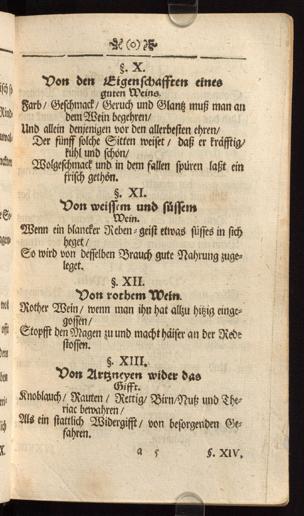 (o)
§. X.
Von den Eigenschafften eines
guten Weins.
Farb/ Geschmack/ Geruch und Glantz muß man an
dem Wein begehren/
Und allein denjenigen vor den allerbesten ehren/
Der fünff solche Sitten weiset/ daß er kräfftig/
kühl und schön/
Wolgeschmack und in dem fallen spüren laßt ein
frisch gethön.
§. XI.
Von weissem und süssem
Wein.
Wenn ein blancker Reben-geist etwas süsses in sich
heget/
So wird von desselben Brauch gute Nahrung zuge-
leget.
§. XII.
Von rothem Wein.
Rother Wein/ wenn man ihn hat allzu hitzig einge-
gossen/
Stopfft den Magen zu und macht häiser an der Rede
stossen.
§. XIII.
Von Artzneyen wider das
Gifft.
Knoblauch/ Rauten/ Rettig/ Birn/ Nuß und The-
riac bewahren/
Als ein stattlich Widergifft/ von besorgenden Ge-
fahren.
a 5 §. XIV.